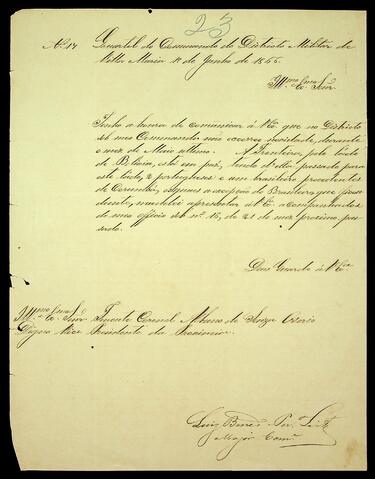 23
Nº 14 Quartel do Commando do Districto Militar de
Villa Maria 1º de Junho de 1866.
Illmo Exmo Sr
Tenho a honra de communicar á V.Exª que no Districto
sob meu Commando não occorreo novidade, durante
o mez de Maio ultimo. A Fronteira, pelo lado
de Bolivia, está em paz, tendo d'ella passado para
este lado, 2 portugueses e um brasileiro procedentes
de Corumbá, os quaes a excepção do Brasileiro que ficou
doente, mandei apresentar á V.Exª acompanhados
do meu officio sob nº 13, de 21 do mez proximo pas
sado.
Deus Guarde á V.Exª
Illmo Exmo Sr Tenente Coronel Albano de Souza Osorio
Digno Vice Presidente da Provincia.
Luiz Bened. Per. Leite
Major Comte